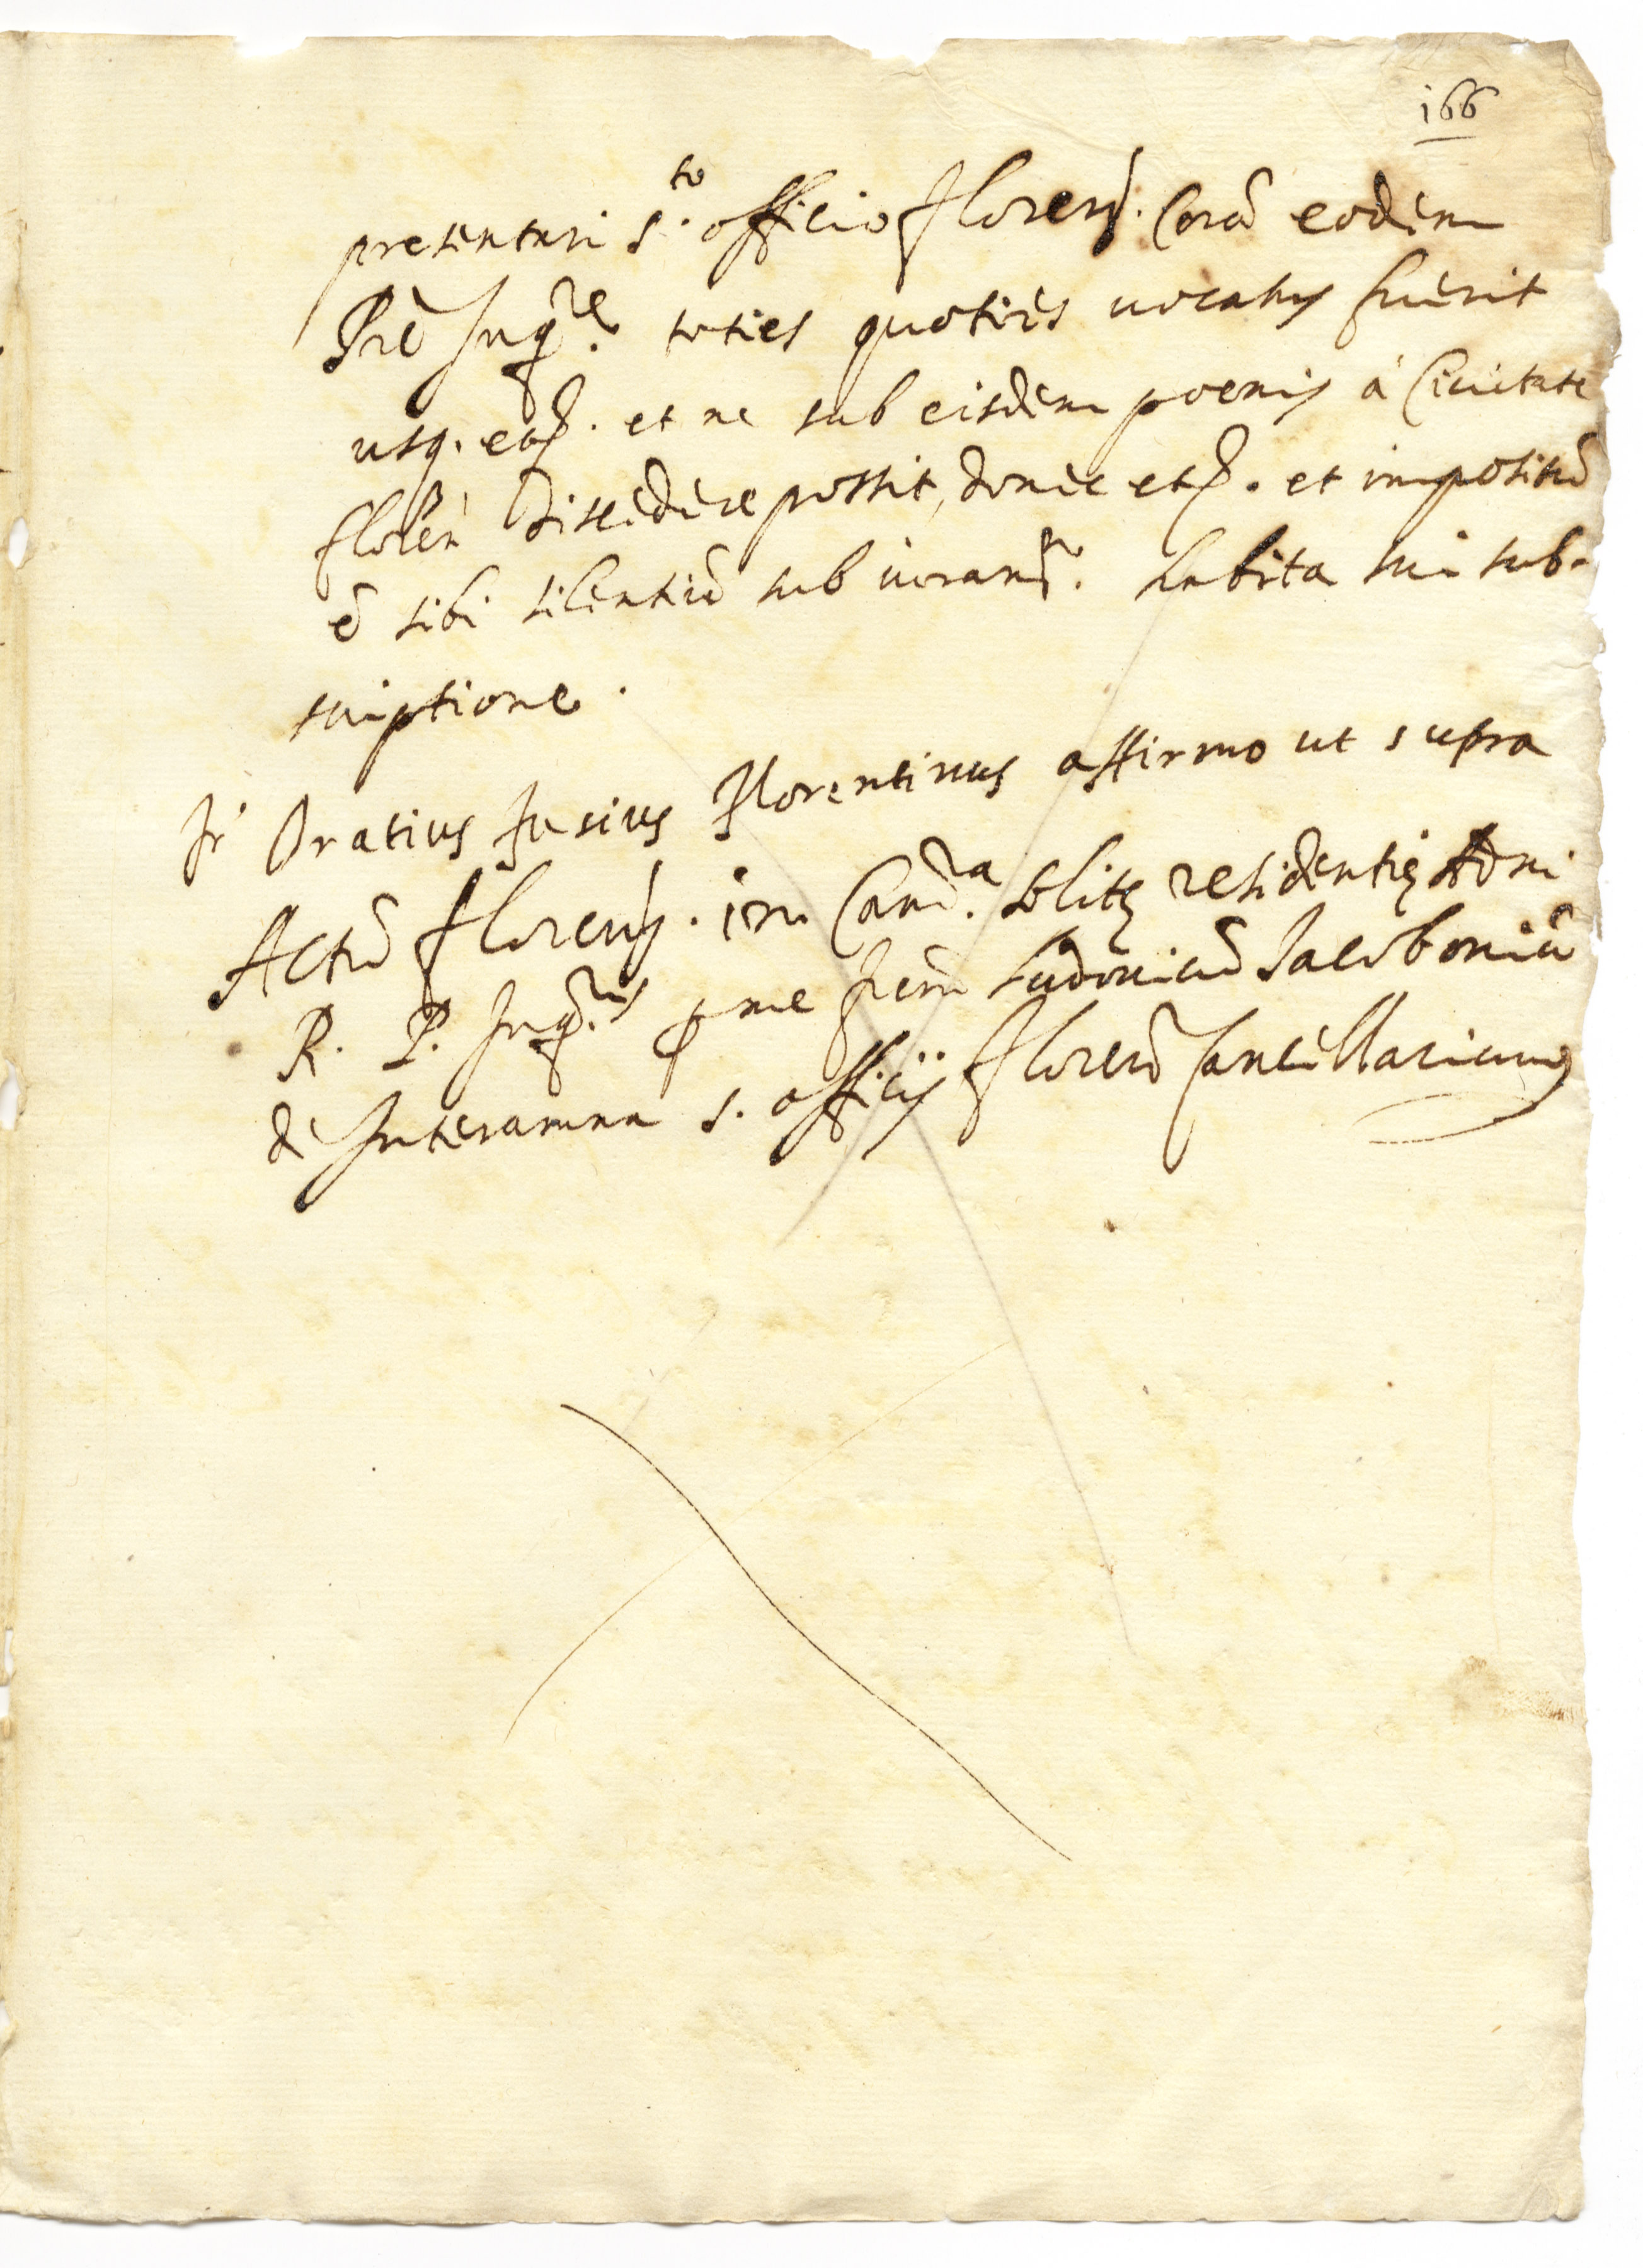 166
presentari s.to officio floren. Corã eodem
Pre Inq.re toties quoties vocatus fuerit
usq. etc. et ne sub eisdem poenis à Civitate
floren discedere possit, donec etc. et impositũ
ẽ sibi silentiũ sub iuramto. habita sui sub-
scriptione.
fr Oratius fusius Florentinus affirmo ut supra
Actũ floren. in Canc.a solitę residentię Adm.
R. P. Inq.ris p me frem Ludovicũ Jacoboniũ
de Interamna s. officij floren Cancellarium